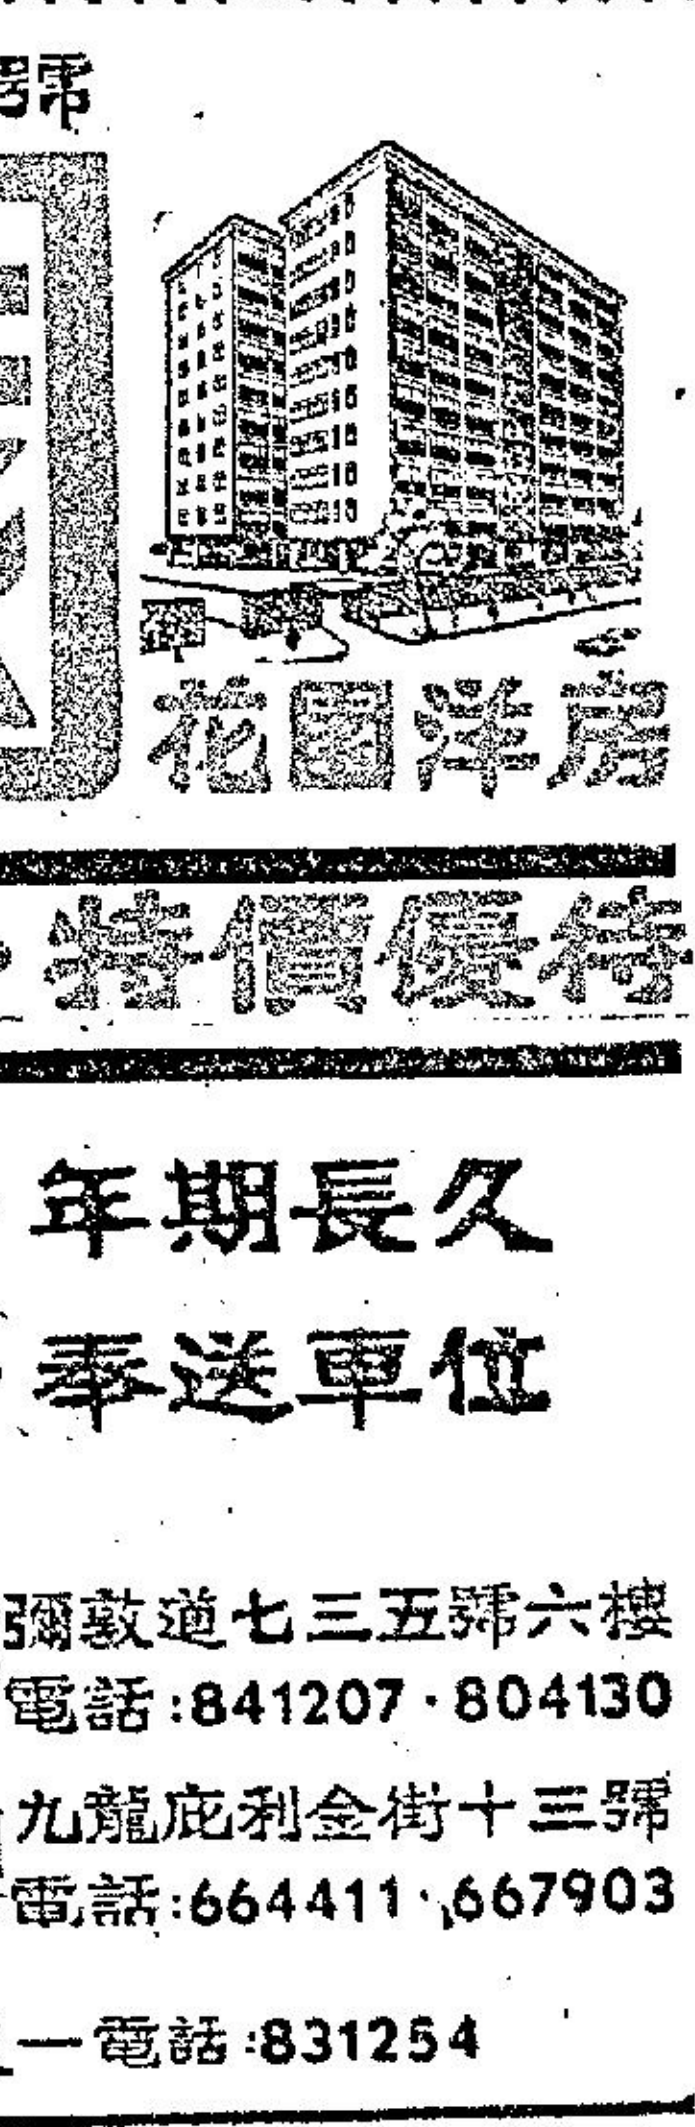 號
花園洋房
特價優待
年期長久
奉送車位
彌敦道七三五號六樓
電話:841207·804130
九龍庇利金街十三號
電話:664411·667903
一電話:831254